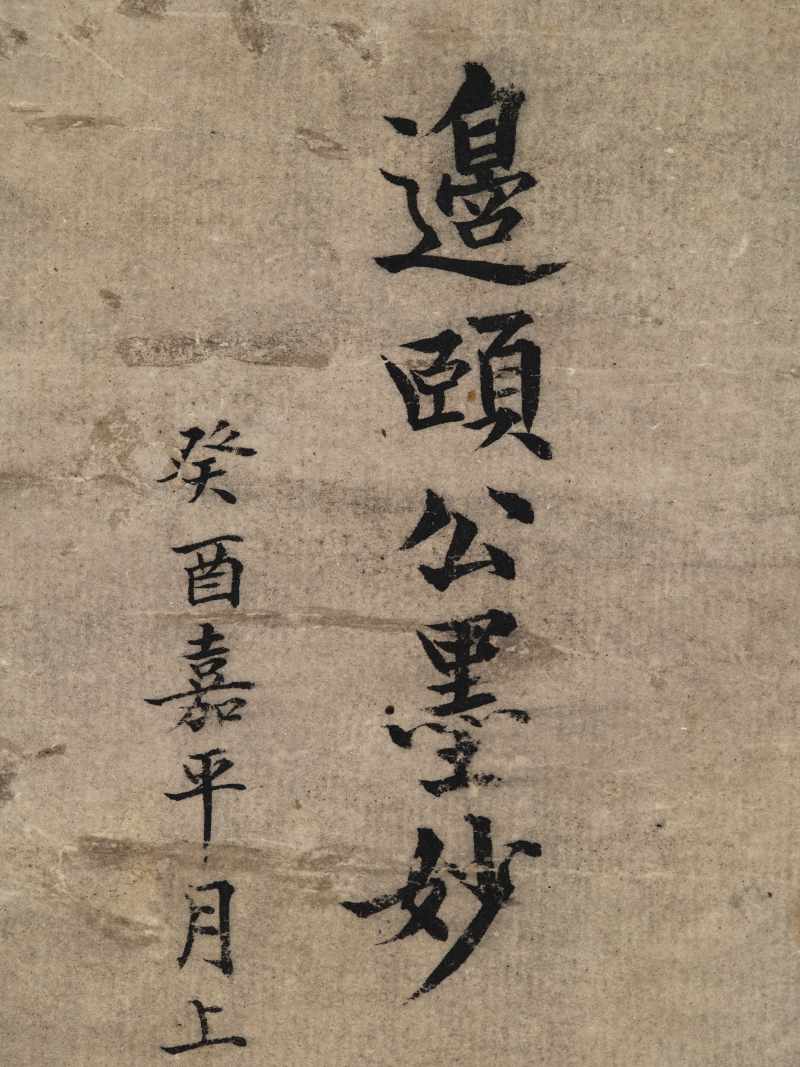 邉頤公墨妙
癸酉嘉平月上